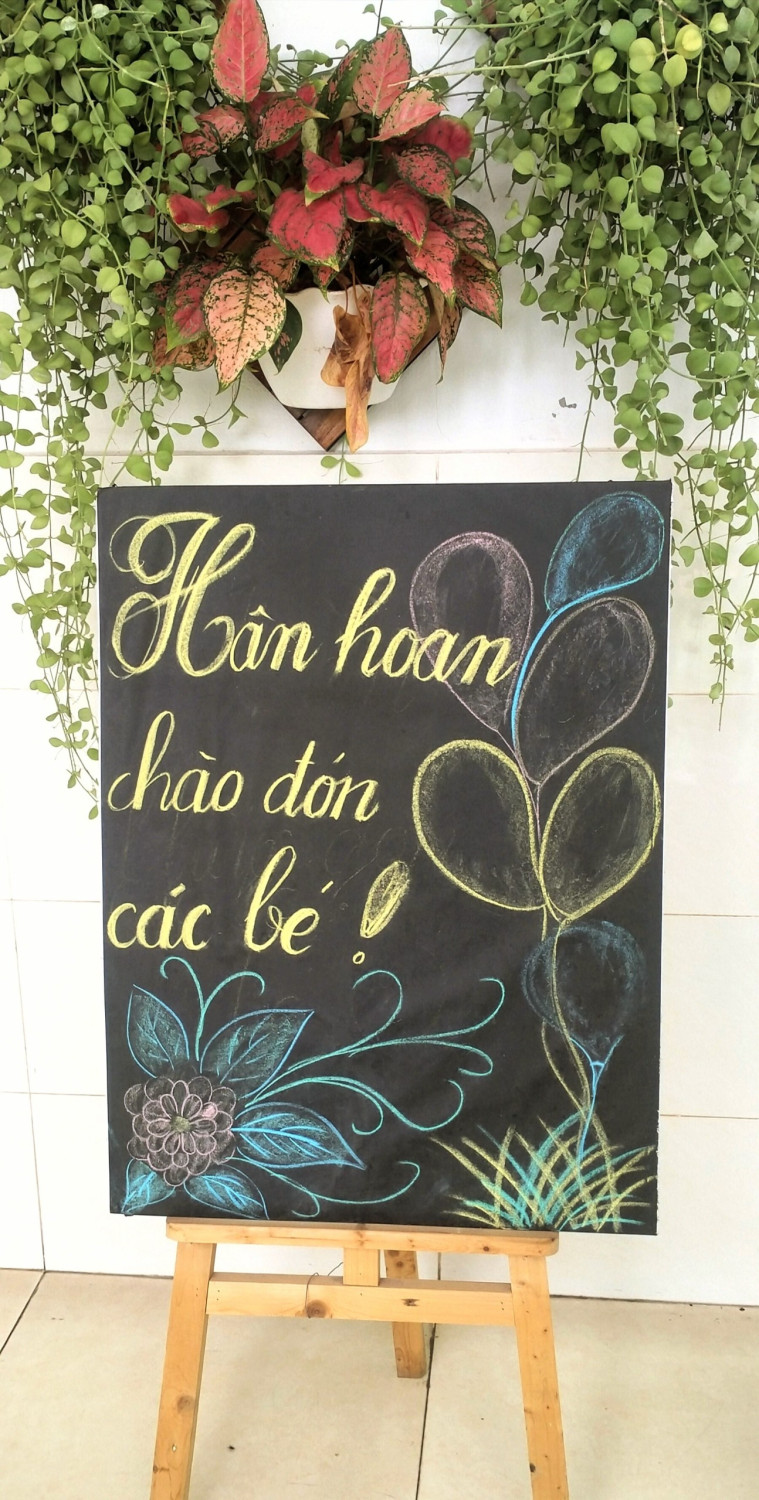 Hân hoan
chào đón
các bé !